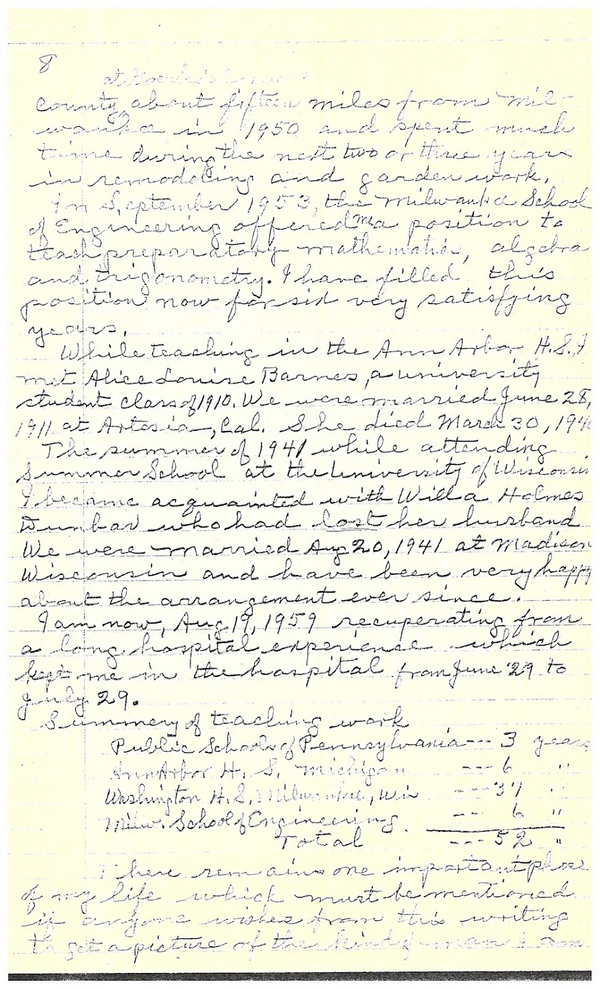 8
at
county about fifteen miles from Mil-
waukee in 1950 and spent much
time during the next two or three years
in remodeling and garden work.
In September 1953, the Milwaukee School
of Engineering offered me a position to
teach preparatory mathematics, algebra
and trigonometry. I have filled this
position now for six very satisfying
years.
While teaching in the Ann Arbor H.S. I
met Alice Louise Barnes, a university
student class of 1910. We were married June 28,
1911 at Artesia, Cal. She died March 30, 194
The summer of 1941 while attending
Summer School at the University of Wisconsin
I became acquainted with Willa Holmes
Dunbar who had lost her husband
We were married Aug 20, 1941 at Madison
Wisconsin and have been very happy
about the arrangement ever since.
I am now, Aug. 19, 1959 recuperating from
a long hospital experience which
kept me in the hospital from June 29 to
July 29.
Summary of teaching work
Public Schools of Pennsylvania --- 3 years
Ann Arbor H. S. Michigan --- 6 "
Washington H.S. Milwaukee, Wis --- 37 "
Milw. School of Engineering. --- 6 "
Total --- 52 "
There remains one important phase
of my life which must be mentioned
if anyone wishes from this writing
to get a picture of the kind of man I am